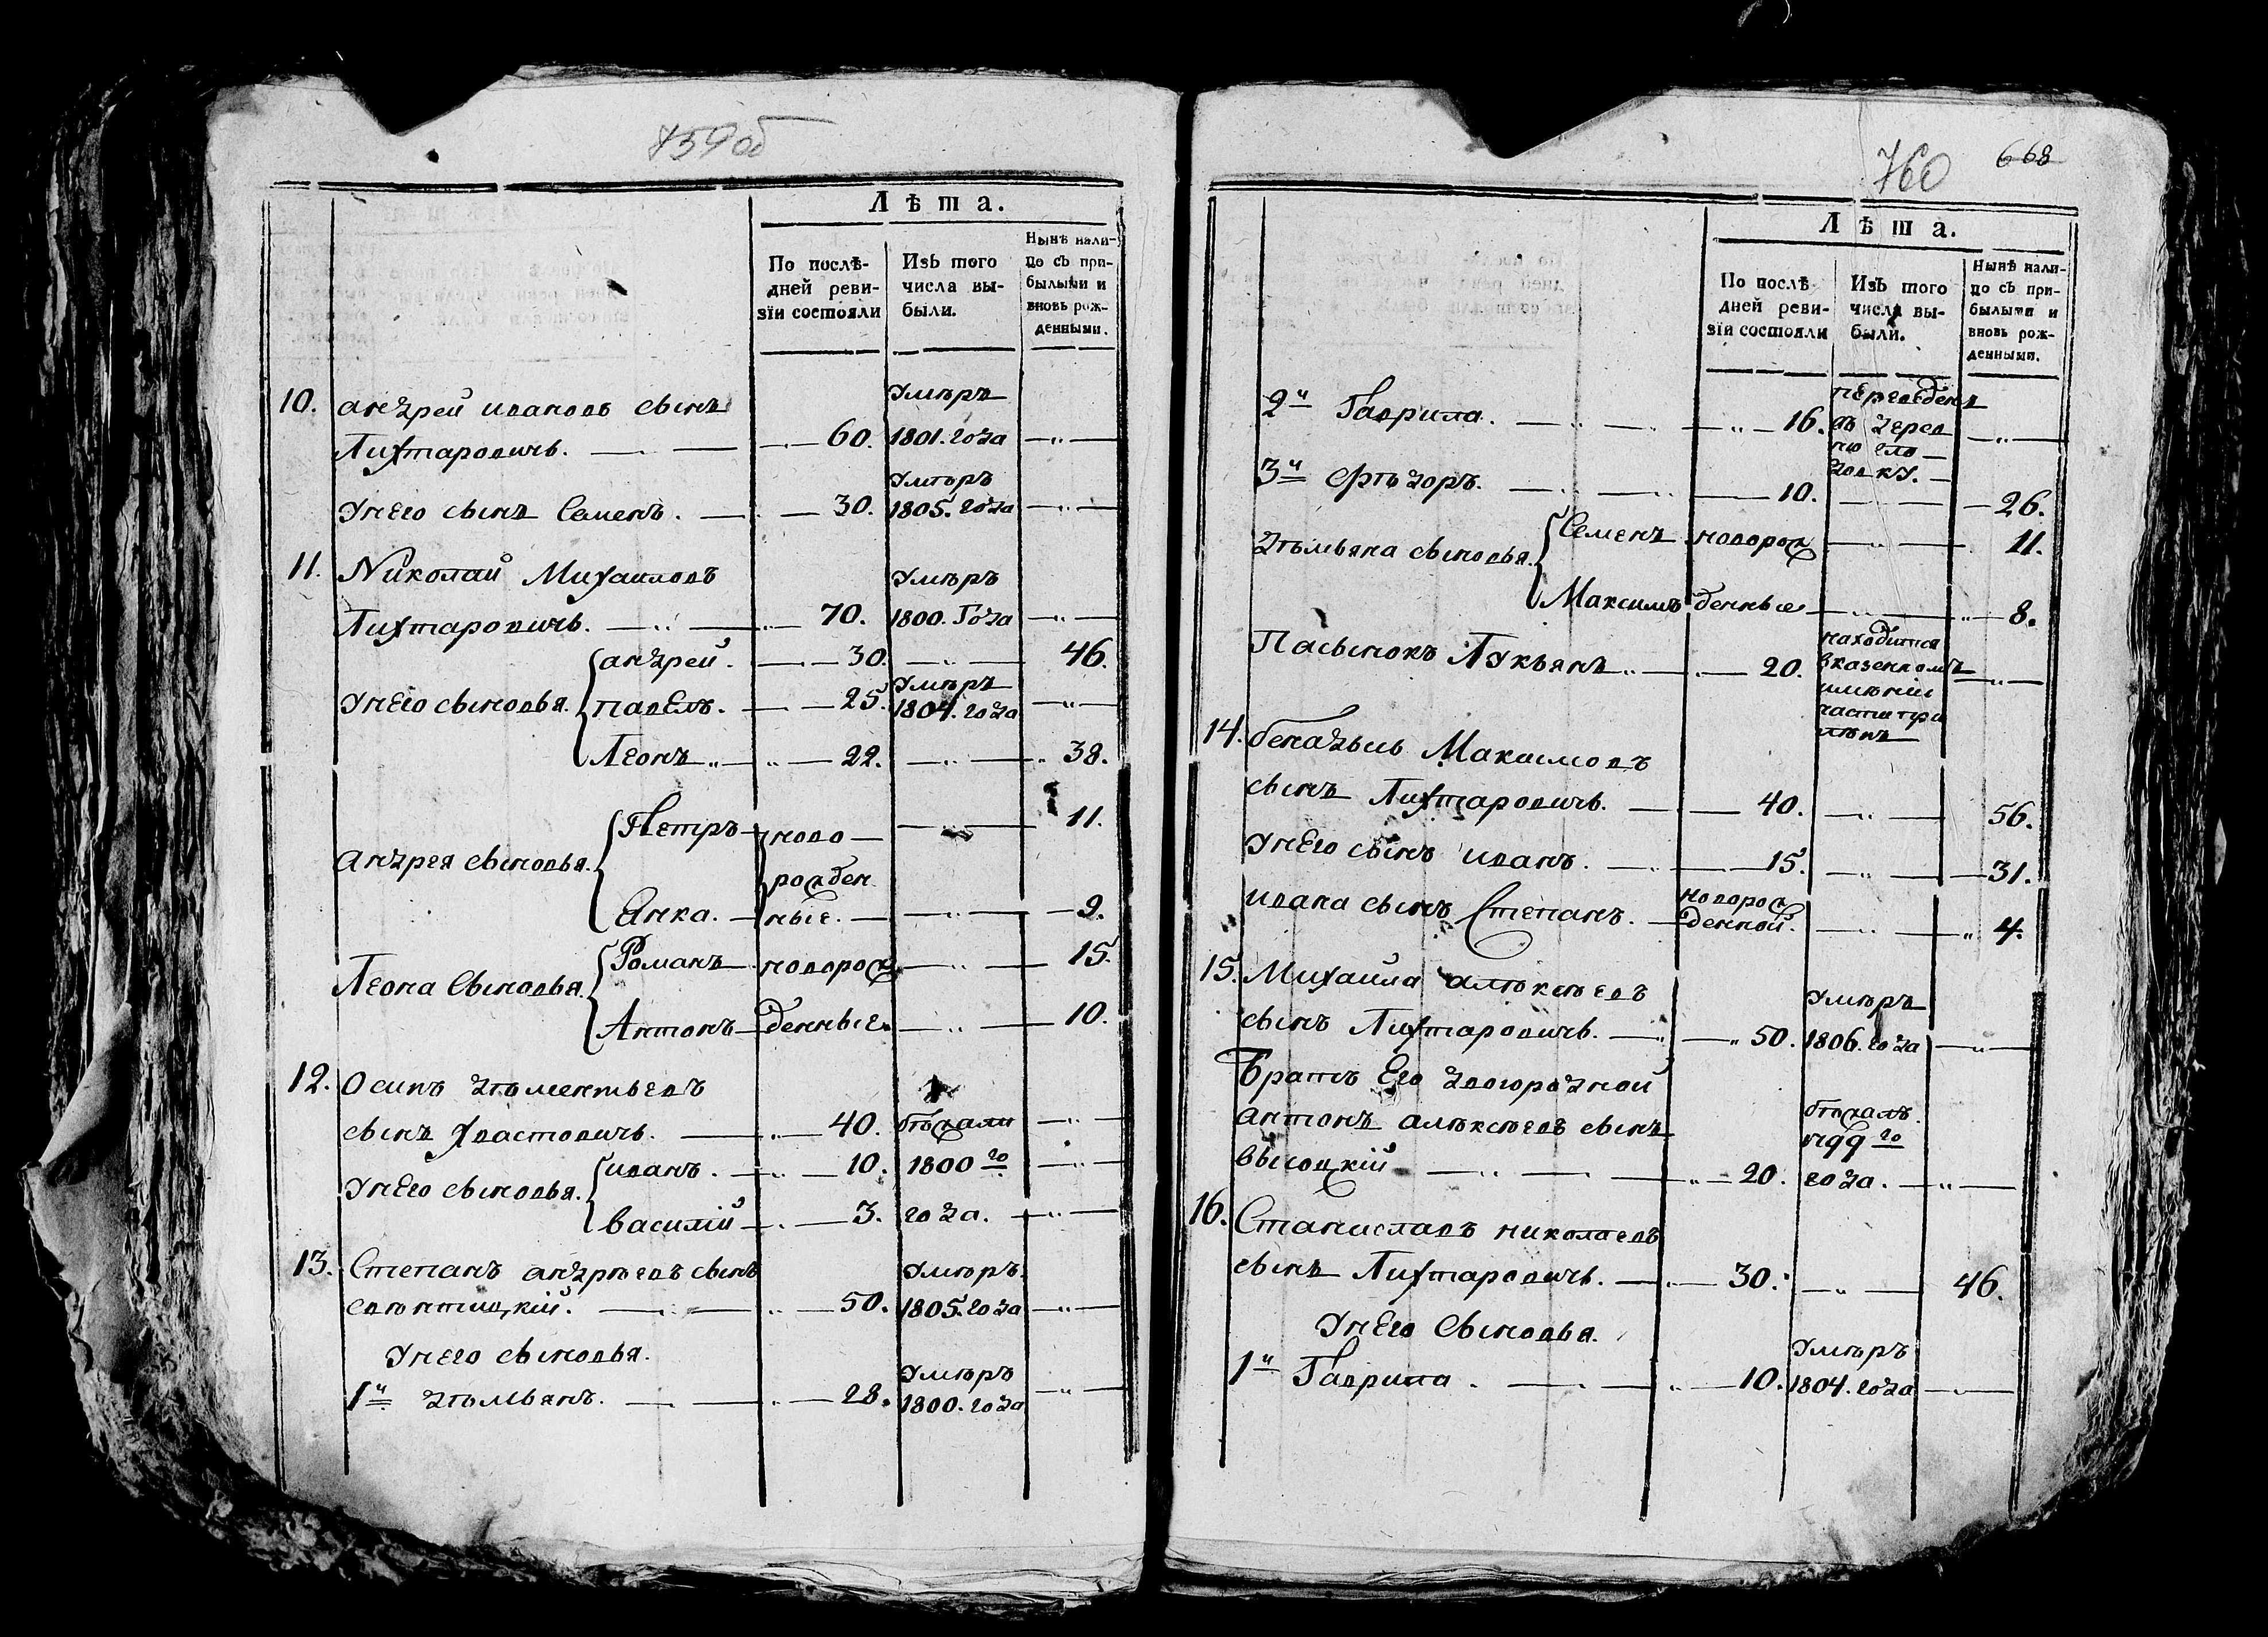 759об
Лѣта.
По послѣ-
дней реви-
зїи состояли
Изъ того
числа вы-
были.
Нынѣ нали-
цо съ при-
былыми и
вновь рож-
денными.
10. Андрей Ивановъ сынъ Умѣръ
Лихтаровичь. 60. 1801. года
У него сынъ Семенъ. 30. Умѣръ 1805. года
11. Николай Михаиловъ Умѣръ
Лихтаровичь. 70. 1800. Года
У него сыновья. Андрей. 30. 46.
Павелъ. 25. Умѣръ 1804. года
Леонъ 22. 38.
Андрея сыновья. Петръ ново 11.
рожден
Янка. ные. 9.
Леона Сыновья. Романъ новорож 15.
Антонъ денные. 10.
12. Осипъ Дѣментьевъ
сынъ Хвастовичь. 40. бѣжали
У него сыновья. Иванъ. 10. 1800го
Василій 3. года.
13. Степанъ Андрѣевъ сынъ Умѣръ.
50. 1805. года
У него сыновья.
1й Дѣмьянъ. 28. Умѣръ 1800. года
760
668
Лѣта.
По послѣ-
дней реви-
зїи состояли
Изъ того
числа вы-
были.
Нынѣ нали-
цо съ при-
былыми и
вновь рож-
денными.
2й Гаврила. 16. переведенъ
въ дерев
ню Сло
водку.
3й Фѣдоръ. 10. 26.
Дѣмьяна сыновья. Семенъ новорож 11.
Максимъ денные 8.
Пасынокъ Лукьянъ 20. находится
вказенномъ
имѣніи
части
14. Бенадысь Максимовъ
сынъ Лихтаровичь. 40. 56.
У него сынъ Иванъ. 15. 31.
Ивана сынъ Степанъ. новорож
денной. 4.
15. Михаила Алѣксѣевъ Умѣръ
сынъ Лихтаровичь. 50. 1806. года
Братъ Его двоюродной
Антонъ Алѣксѣевъ сынъ бѣжалъ
Высоцкій 20. 1799го года.
16. Станиславъ Николаевъ
сынъ Лихтаровичь. 30. 46.
У него Сыновья.
1й Гаврила. 10. Умѣръ 1804. года